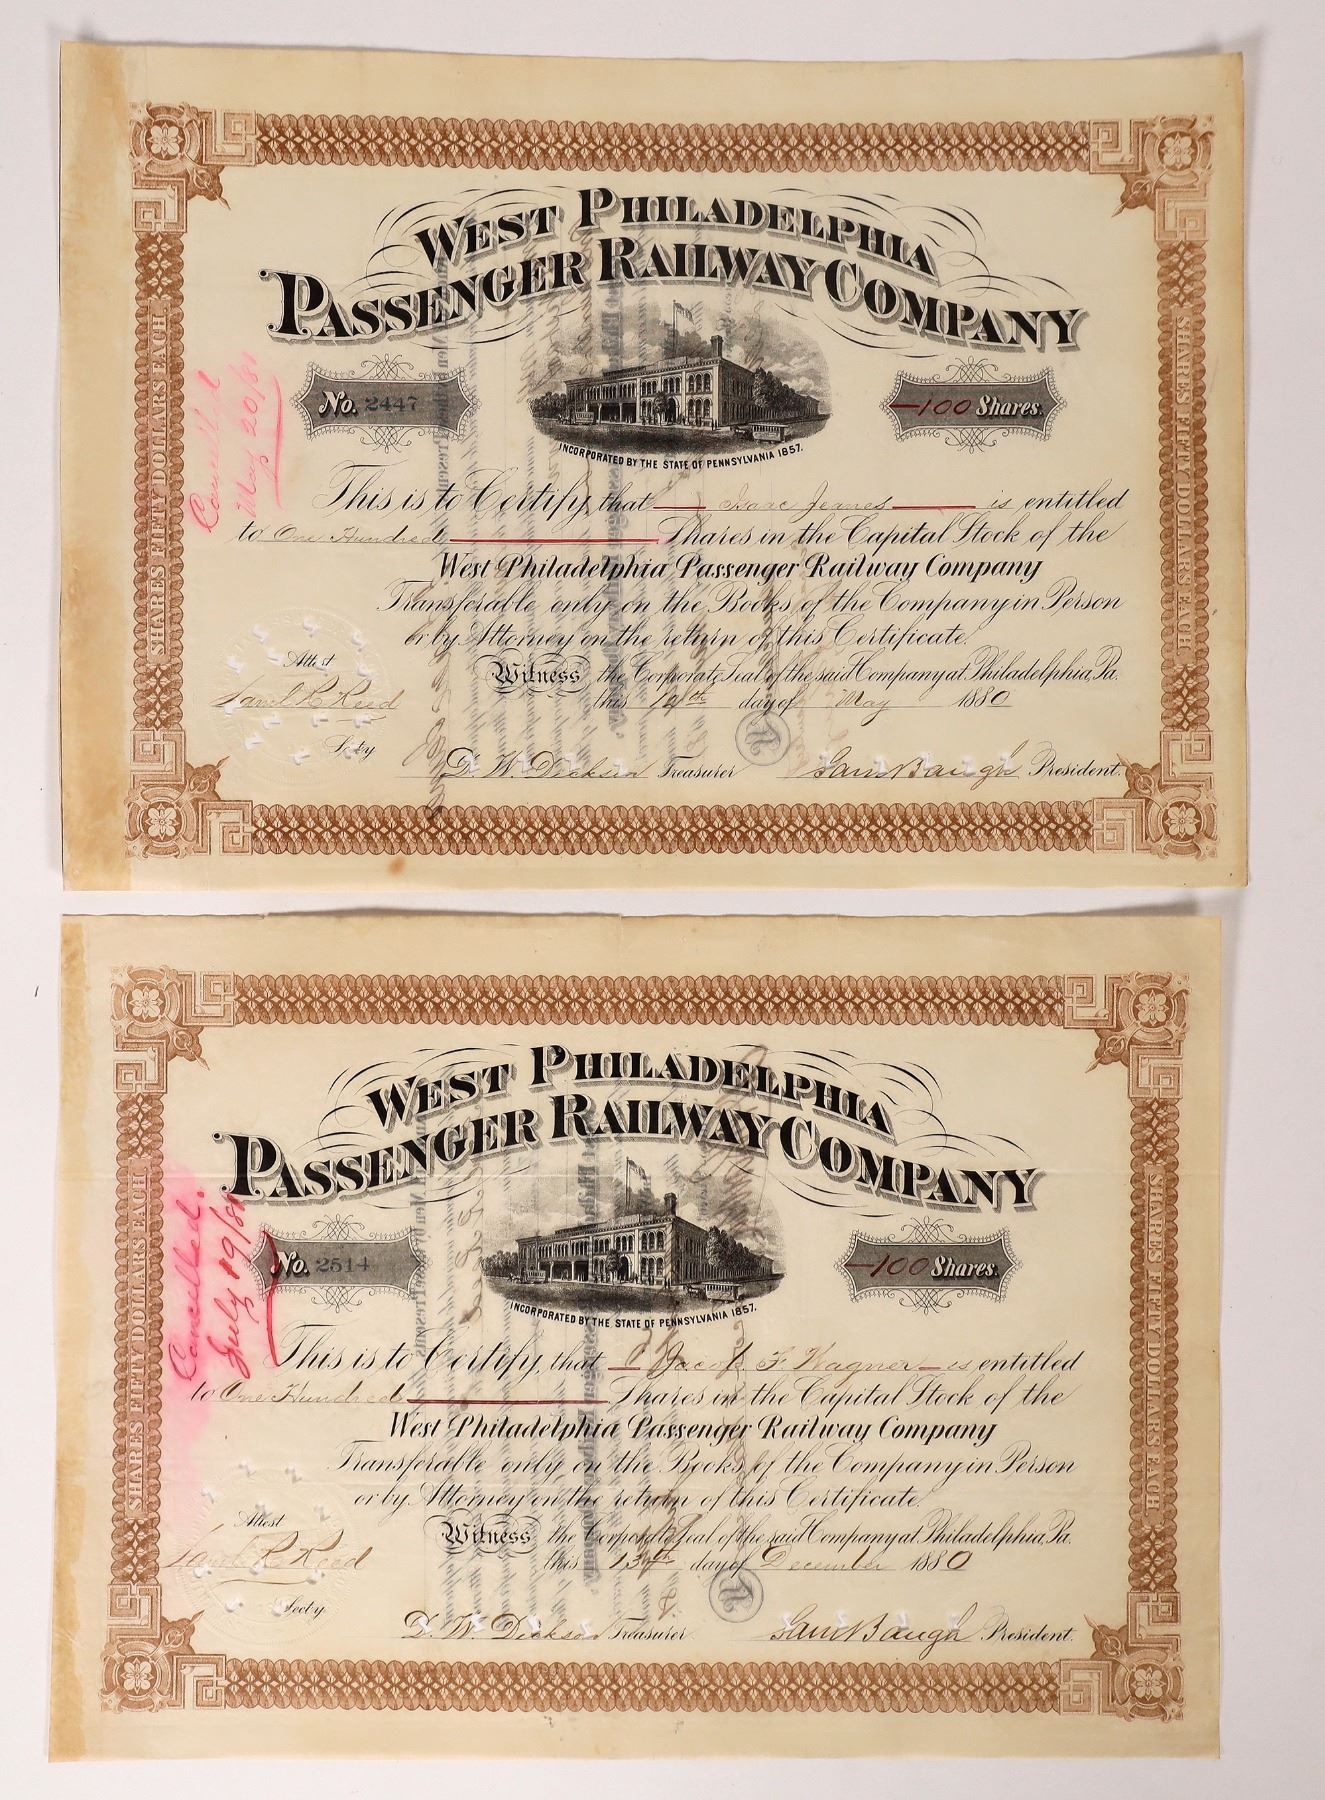 WEST PHILADELPHIA
PASSENGER RAILWAY COMPANY
No. 2447
—100 Shares.
INCORPORATED BY THE STATE OF PENNSYLVANIA 1857.
Cancelled
May 20/81
SHARES FIFTY DOLLARS EACH
SHARES FIFTY DOLLARS EACH
This is to Certify, that — Isaac Jeanes — is entitled
to One Hundred — Shares in the Capital Stock of the
West Philadelphia Passenger Railway Company
Transferable only on the Books of the Company in Person
or by Attorney on the return of this Certificate.
Witness the Corporate Seal of the said Company at Philadelphia, Pa.
this 14th day of May 1880
Attest
Saml R. Reed
Secty
D. W. Dickson Treasurer
Sam Baugh President.
WEST PHILADELPHIA
PASSENGER RAILWAY COMPANY
No. 2514
—100 Shares.
INCORPORATED BY THE STATE OF PENNSYLVANIA 1857.
Cancelled.
July 19/81
SHARES FIFTY DOLLARS EACH
SHARES FIFTY DOLLARS EACH
This is to Certify, that — Jacob F. Wagner — is entitled
to One Hundred — Shares in the Capital Stock of the
West Philadelphia Passenger Railway Company
Transferable only on the Books of the Company in Person
or by Attorney on the return of this Certificate.
Witness the Corporate Seal of the said Company at Philadelphia, Pa.
this 13th day of December 1880
Attest
Saml R. Reed
Secty.
D. W. Dickson Treasurer
Sam Baugh President.